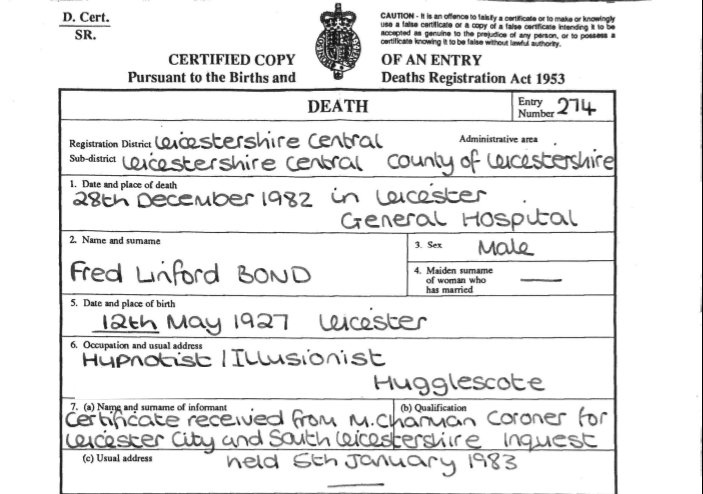 D. Cert.
SR.
CAUTION - It is an offence to falsify a certificate or to make or knowingly
use a false certificate or a copy of a false certificate intending it to be
accepted as genuine to the prejudice of any person, or to possess a
certificate knowing it to be false without lawful authority.
CERTIFIED COPY OF AN ENTRY
Pursuant to the Births and Deaths Registration Act 1953
DEATH
Entry Number 274
Registration District Leicestershire Central
Administrative area
Sub-district Leicestershire Central County of Leicestershire
1. Date and place of death
28th December 1982 in Leicester
General Hospital
2. Name and surname
Fred Linford BOND
3. Sex Male
4. Maiden surname
of woman who
has married
5. Date and place of birth
12th May 1927 Leicester
6. Occupation and usual address
Hypnotist / Illusionist
Hugglescote
7. (a) Name and surname of informant
(b) Qualification
Certificate received from M. Charman Coroner for
Leicester City and South Leicestershire inquest
(c) Usual address
held 5th January 1983